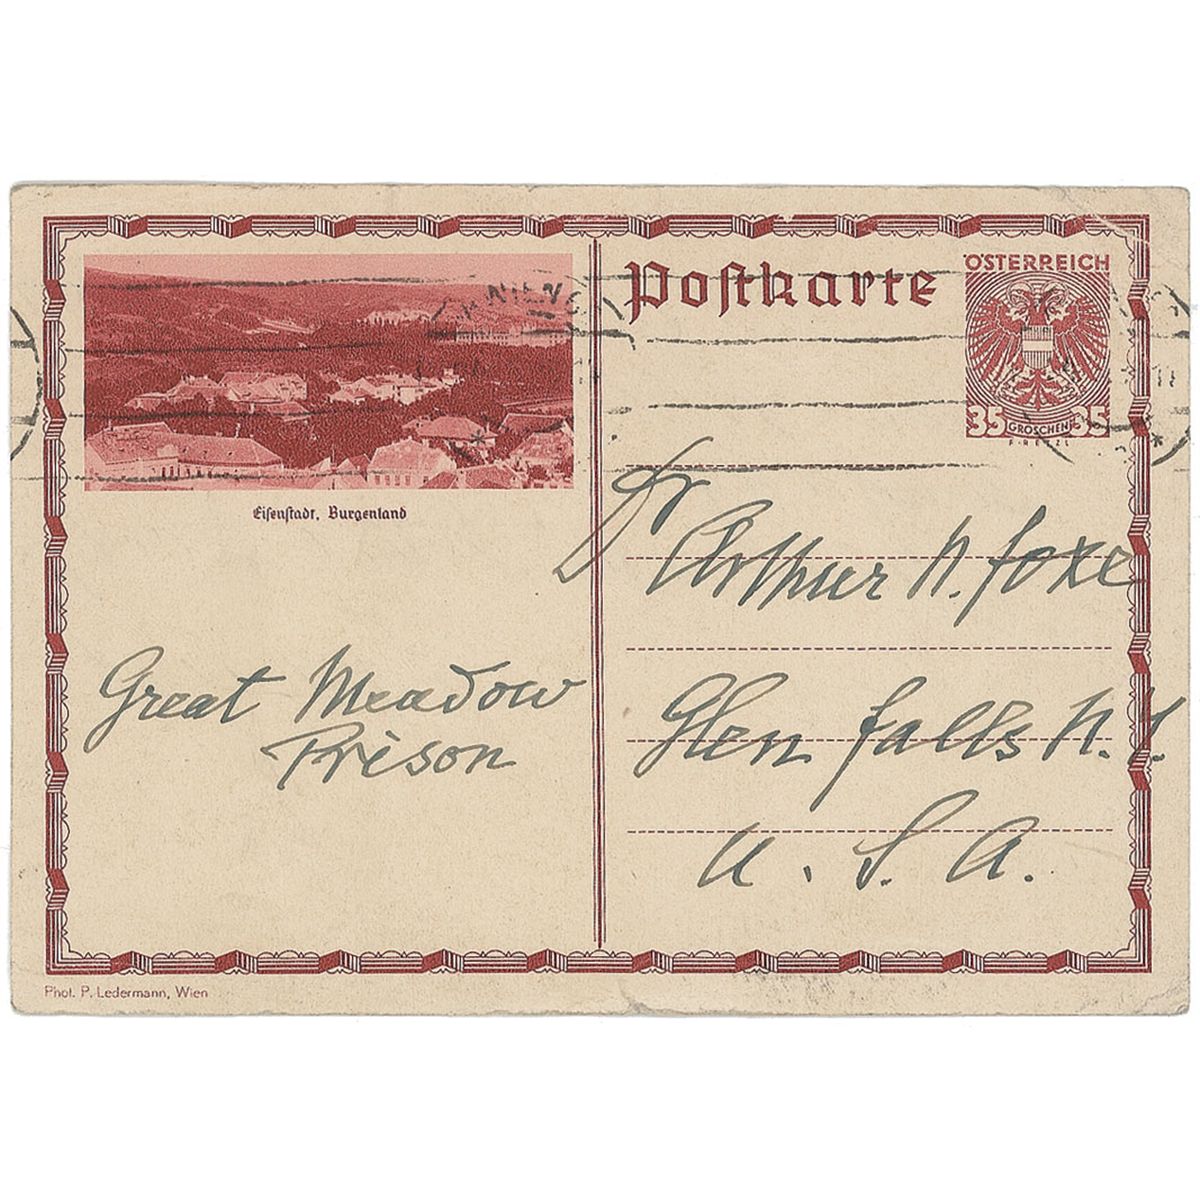 Postkarte
ÖSTERREICH
35 GROSCHEN 35
F. RETZL
Eisenstadt, Burgenland
Dr
Arthur N. Foxe
Great Meadow
Prison
Glen Falls N.Y.
U.S.A.
Phot. P. Ledermann, Wien